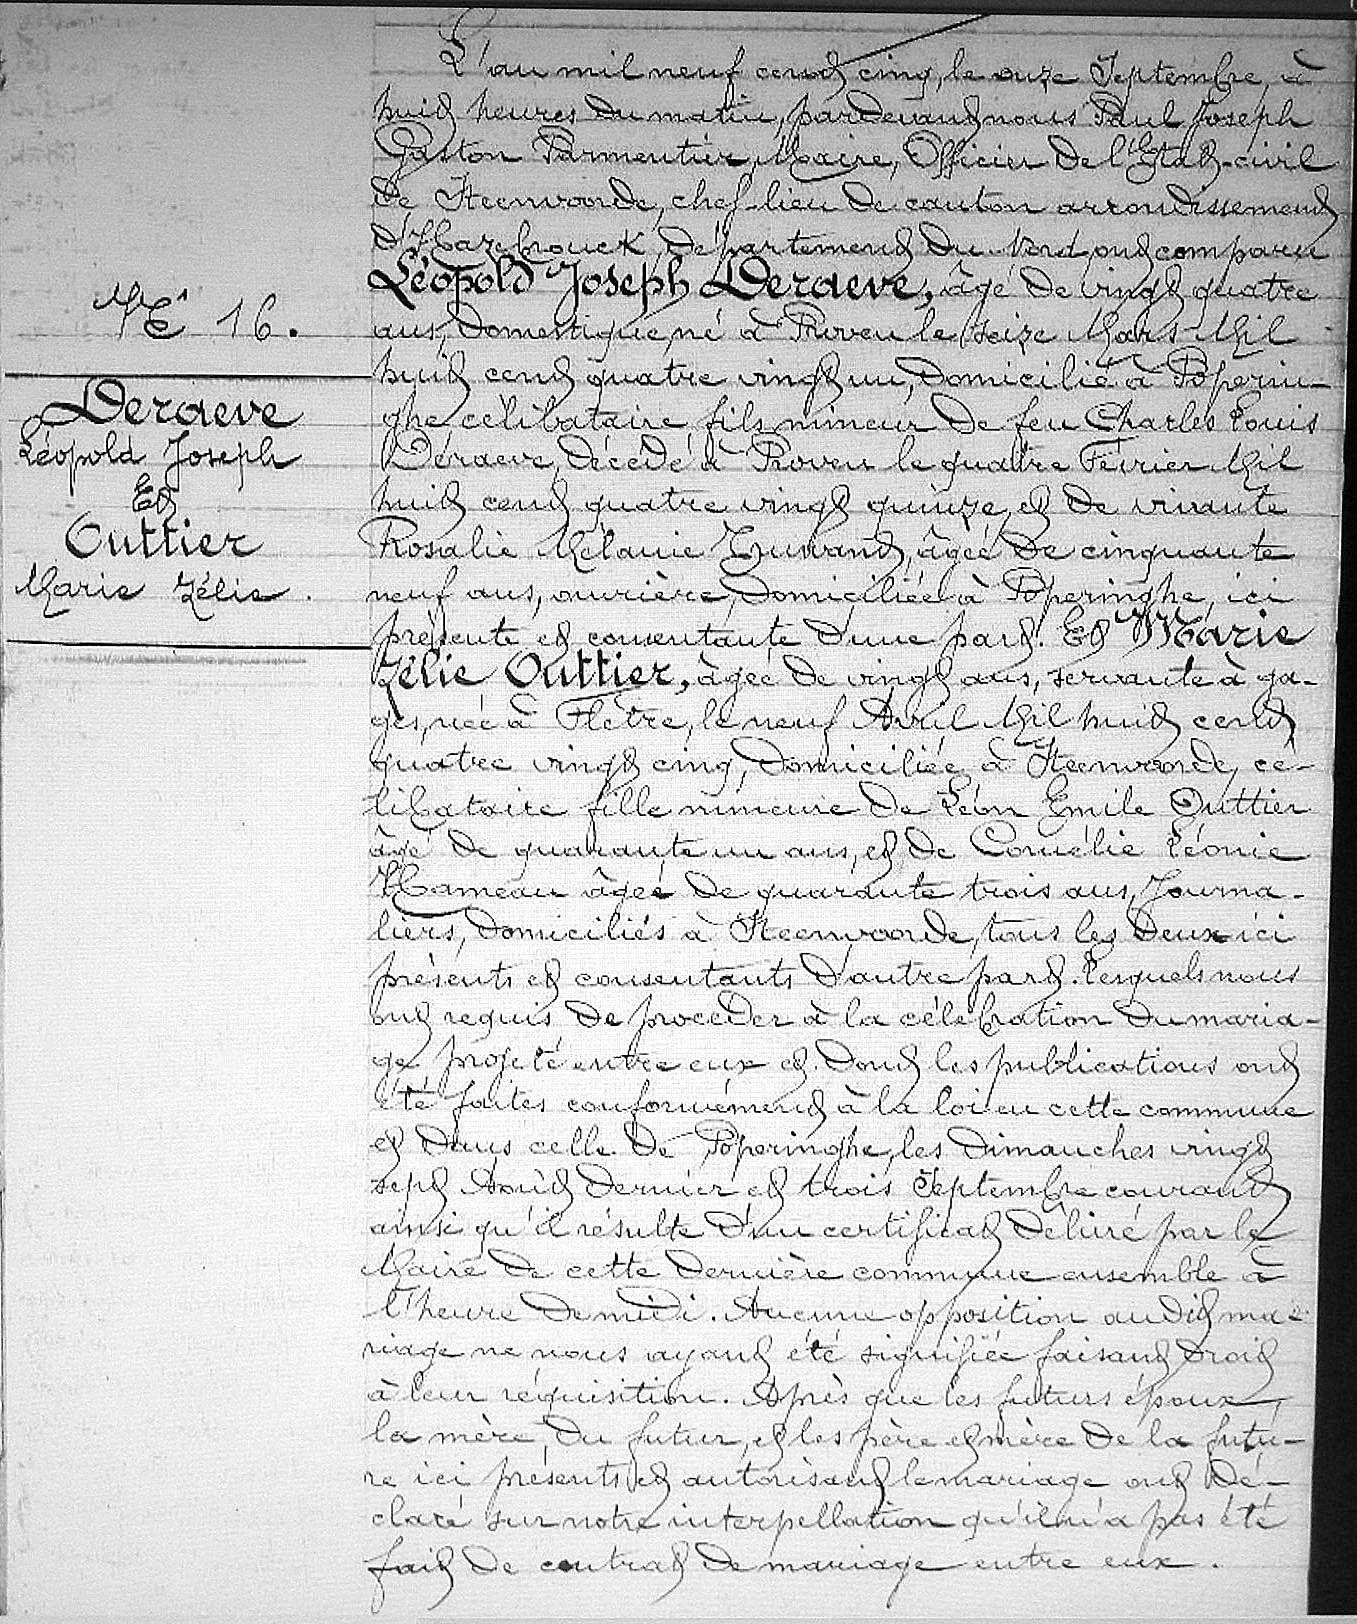 L'an mil neuf cent cinq, le onze Septembre, à
huit heures du matin, pardevant nous Paul Joseph
Gaston Parmentier, Maire, Officier de l'Etat-civil
de Steenvoorde, chef-lieu de canton arrondissement
d'Hazebrouck, département du Nord, ont comparu
Léopold Joseph Deraeve, âgé de vingt quatre
ans, domestique, né à Proven le seize Mars Mil
huit cent quatre vingt un, domicilié à Poperin-
ghe célibataire fils mineur de feu Charles Louis
Deraeve, décédé à Proven le quatre Février Mil
huit cent quatre vingt quinze, et de vivante
Rosalie Mélanie, âgée de cinquante
neuf ans, ouvrière, domiciliée à Poperinghe, ici
présente et consentante d'une part. Et Marie
Zélie Outtier, âgée de vingt ans, servante à ga-
ges, née à Flêtre, le neuf Avril Mil huit cent
quatre vingt cinq, domiciliée à Steenvoorde, cé-
libataire fille mineure de Léon Emile Outtier
âgé de quarante un ans, et de Cornélie Léonie
Hameau âgée de quarante trois ans, Journa-
liers, domiciliés à Steenvoorde, tous les deux ici
présents et consentants d'autre part. Lesquels nous
ont requis de procéder à la célébration du maria-
ge projeté entre eux et dont les publications ont
été faites conformément à la loi en cette commune
et dans celle de Poperinghe, les dimanches vingt
sept Août dernier et trois Septembre courant
ainsi qu'il résulte d'un certificat délivré par le
Maire de cette dernière commune ensemble à
l'heure de midi. Aucune opposition audit ma-
riage ne nous ayant été signifiée faisant droit
à leur réquisition. Après que les futurs époux,
la mère, du futur, et les père et mère de la futu-
re ici présents et autorisant le mariage ont dé-
claré sur notre interpellation qu'il n'a pas été
fait de contrat de mariage entre eux.
Nº 16.
Deraeve
Léopold Joseph
Et
Outtier
Marie Zélie.